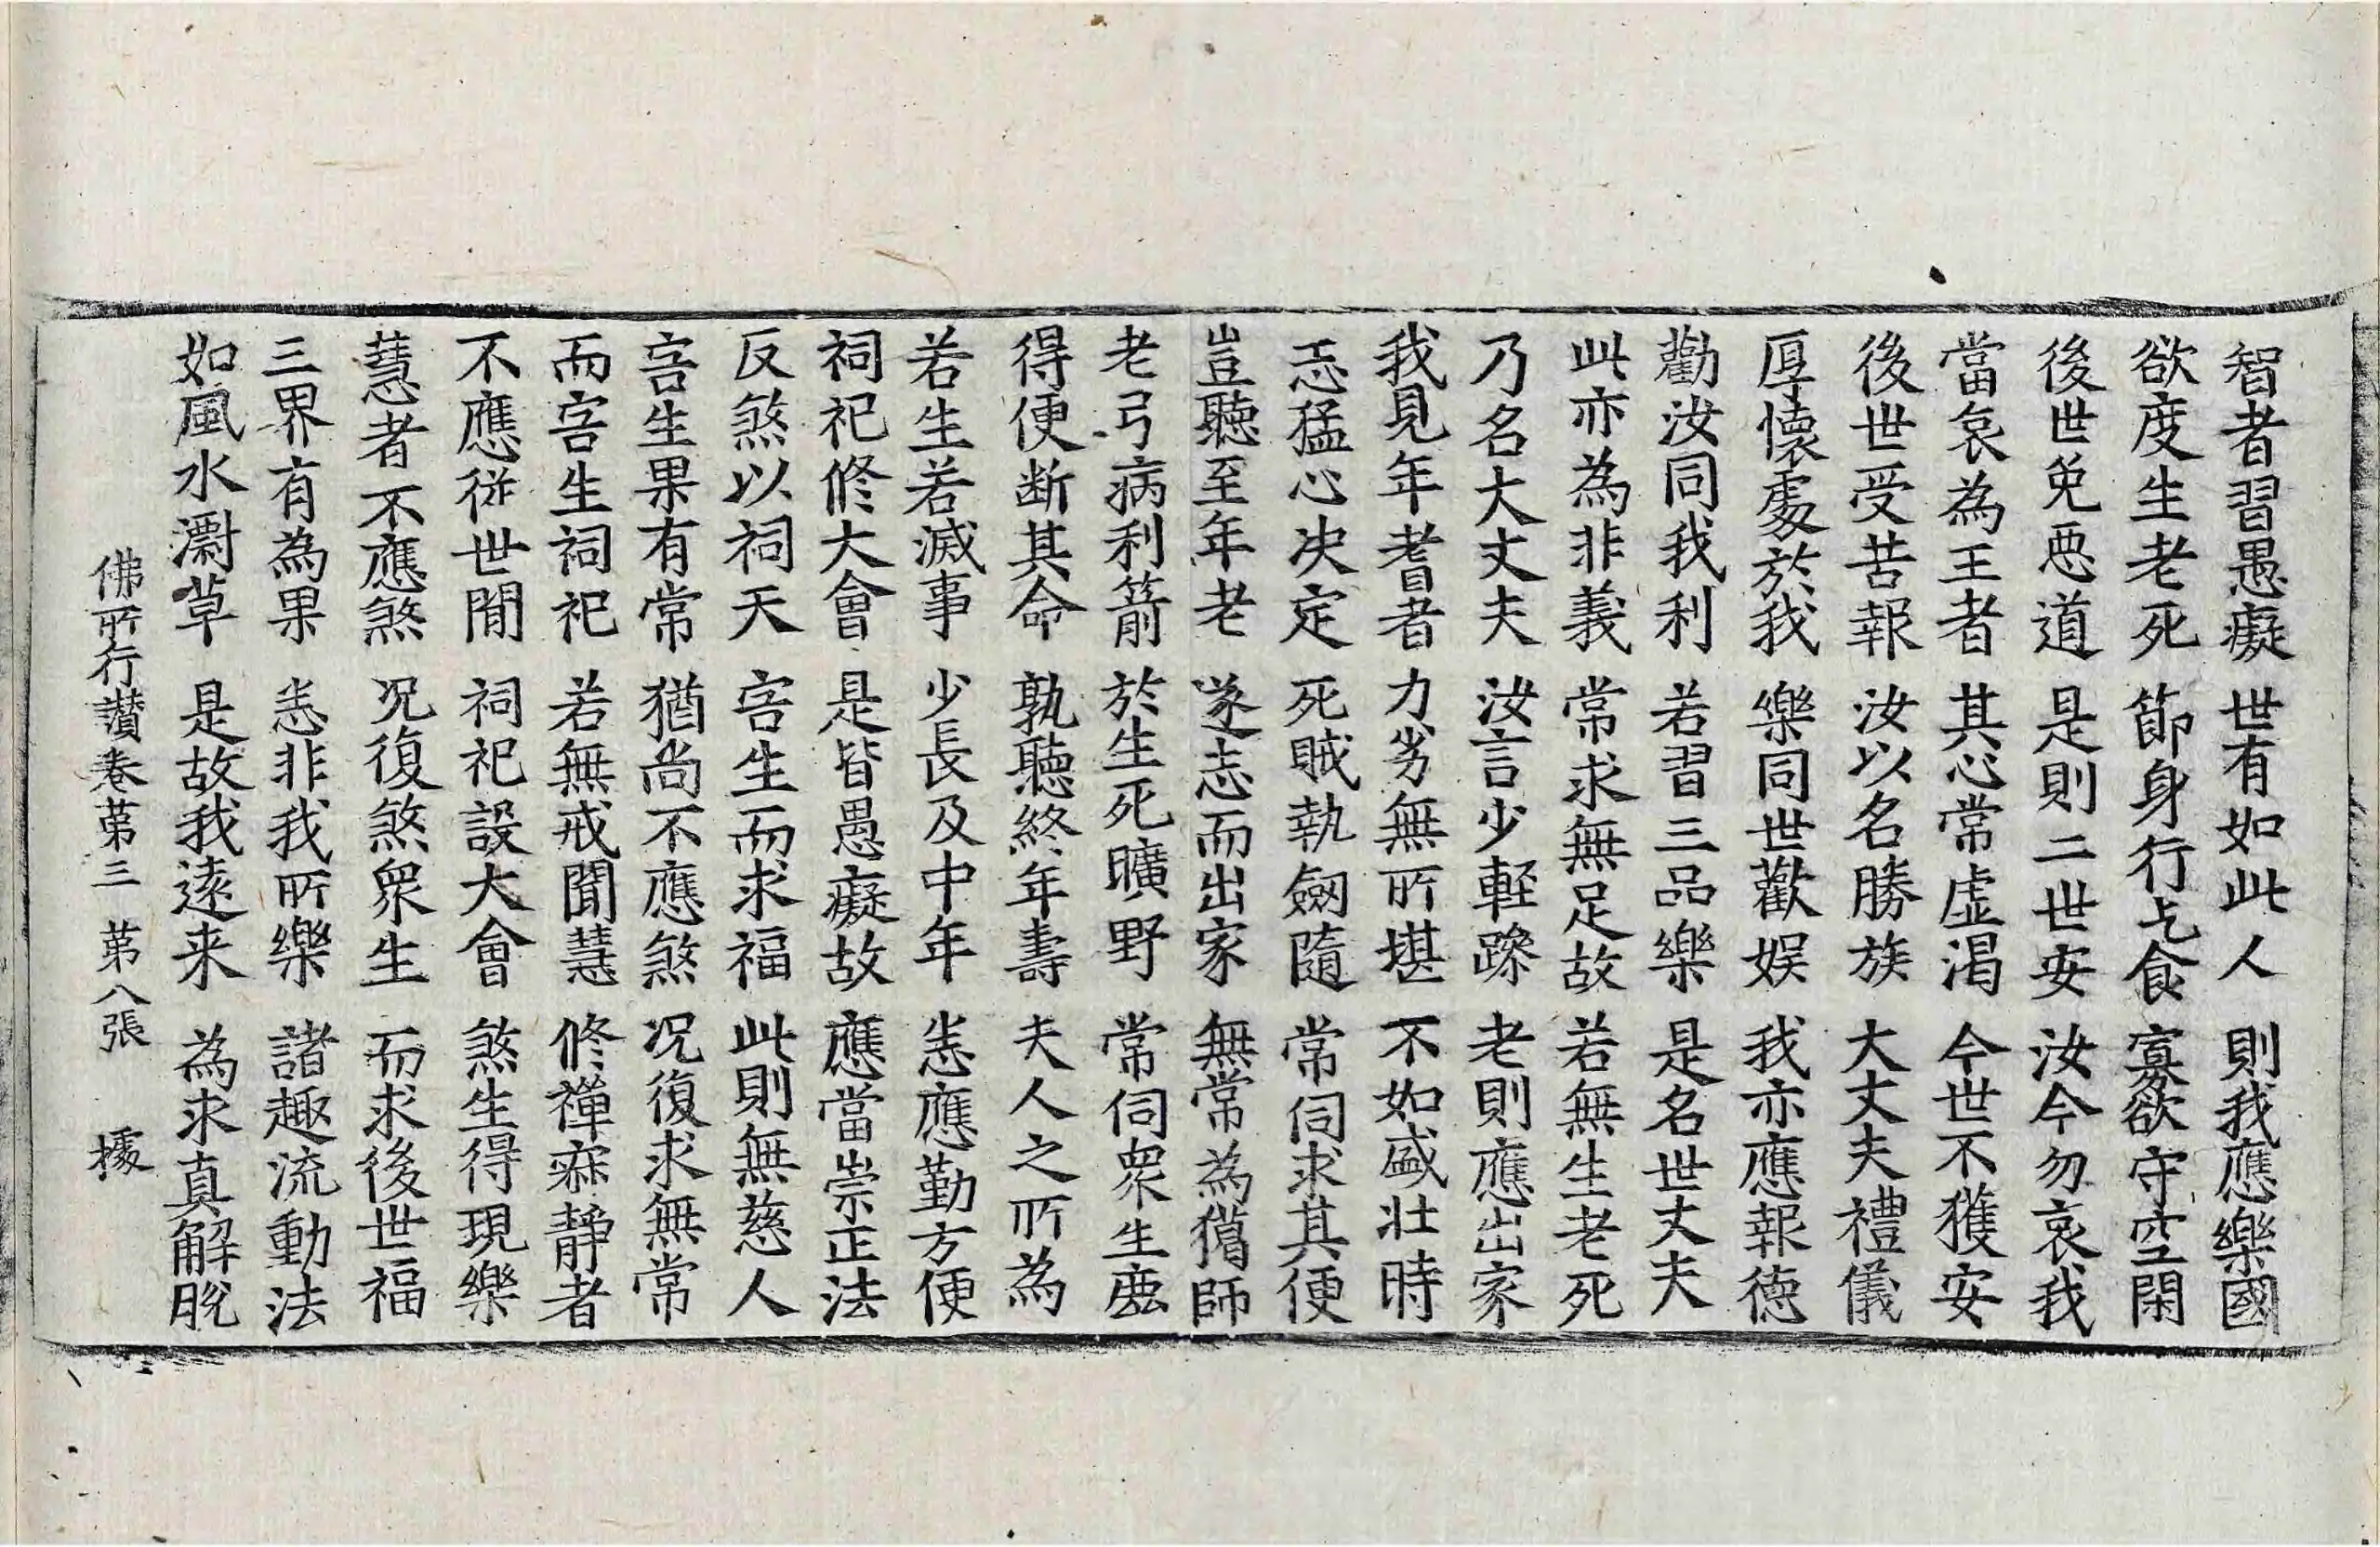 智者習愚癡　世有如此人　則我應樂國
欲度生老死　節身行乞食　寡欲守空閑
後世免惡道　是則二世安　汝今勿哀我
當哀為王者　其心常虛渴　今世不獲安
後世受苦報　汝以名勝族　大丈夫禮儀
厚懷處於我　樂同世歡娛　我亦應報德
勸汝同我利　若習三品樂　是名世丈夫
此亦為非義　常求無足故　若無生老死
乃名大丈夫　汝言少輕躁　老則應出家
我見年耆者　力劣無所堪　不如盛壯時
志猛心決定　死賊執劒隨　常伺求其便
豈聽至年老　遂志而出家　無常為獵師
老弓病利箭　於生死曠野　常伺眾生鹿
得便斷其命　孰聽終年壽　夫人之所為
若生若滅事　少長及中年　悉應勤方便
祠祀修大會　是皆愚癡故　應當崇正法
反煞以祠天　害生而求福　此則無慈人
害生果有常　猶尚不應煞　況復求無常
而害生祠祀　若無戒聞慧　修禪寂靜者
不應從世間　祠祀設大會　煞生得現樂
慧者不應煞　況復煞眾生　而求後世福
三界有為果　悉非我所樂　諸趣流動法
如風水灂草　是故我遠来　為求真解脫
佛所行讚卷第三　第八張　㯫